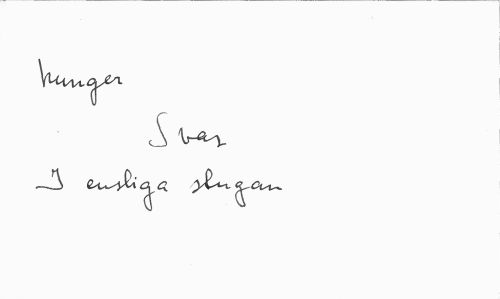 hunger
Svar
I ensliga stugan